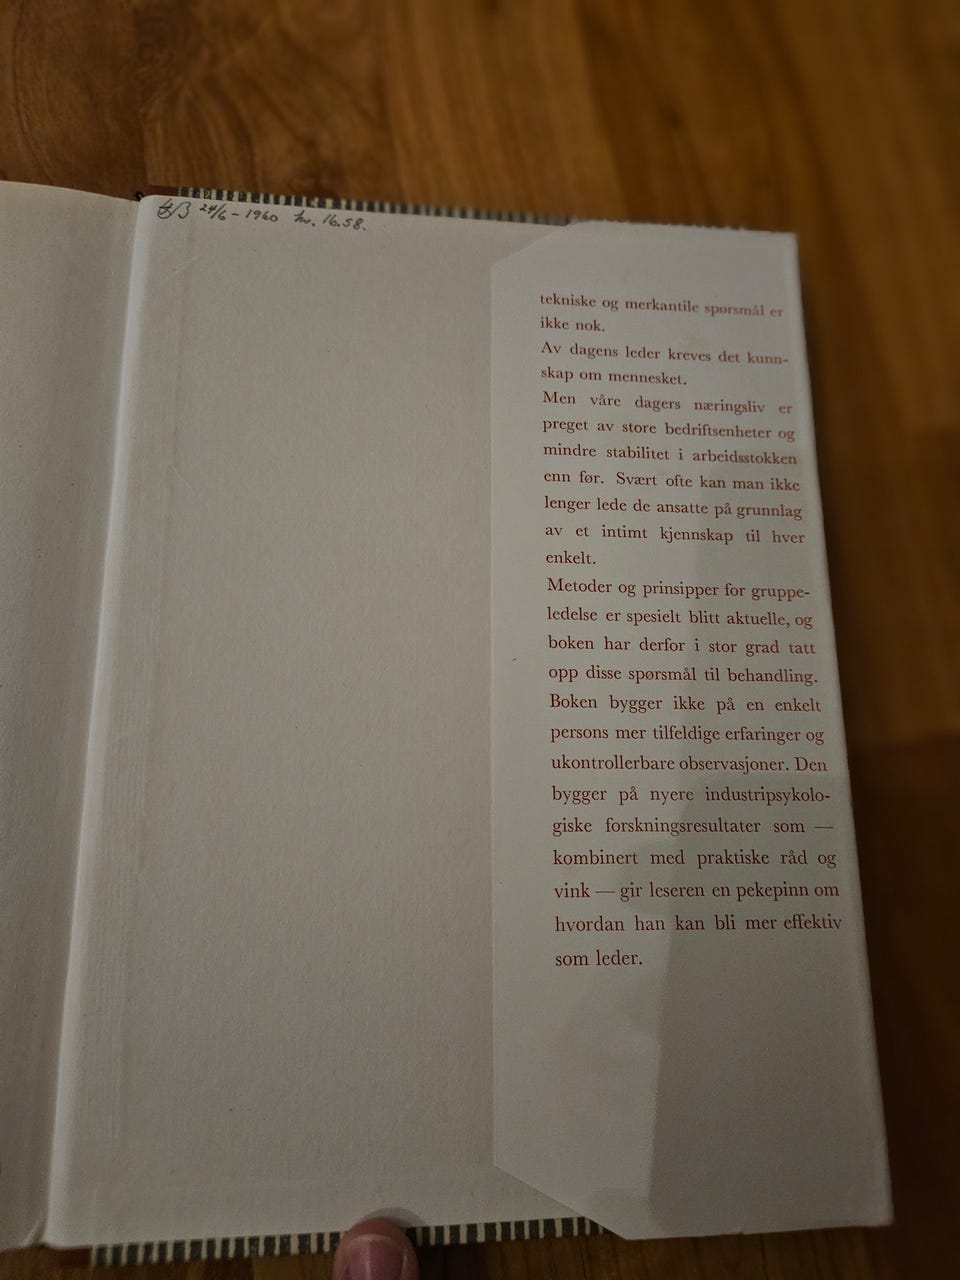 24/6 - 1960 kr. 16.58.
tekniske og merkantile spørsmål er
ikke nok.
Av dagens leder kreves det kunn-
skap om mennesket.
Men våre dagers næringsliv er
preget av store bedriftsenheter og
mindre stabilitet i arbeidsstokken
enn før. Svært ofte kan man ikke
lenger lede de ansatte på grunnlag
av et intimt kjennskap til hver
enkelt.
Metoder og prinsipper for gruppe-
ledelse er spesielt blitt aktuelle, og
boken har derfor i stor grad tatt
opp disse spørsmål til behandling.
Boken bygger ikke på en enkelt
persons mer tilfeldige erfaringer og
ukontrollerbare observasjoner. Den
bygger på nyere industripsykolo-
giske forskningsresultater som —
kombinert med praktiske råd og
vink — gir leseren en pekepinn om
hvordan han kan bli mer effektiv
som leder.